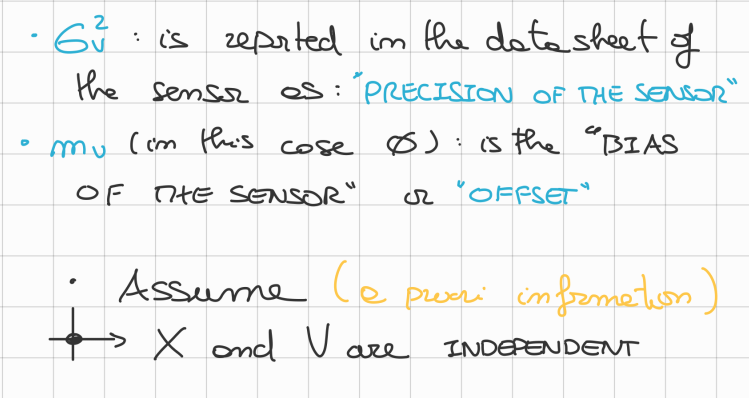 · σᵥ² : is reported in the datasheet of
the sensor as: "PRECISION OF THE SENSOR"
· mᵥ (in this case ∅) : is the "BIAS
OF THE SENSOR" or "OFFSET"
· Assume (a priori information)
X and V are INDEPENDENT